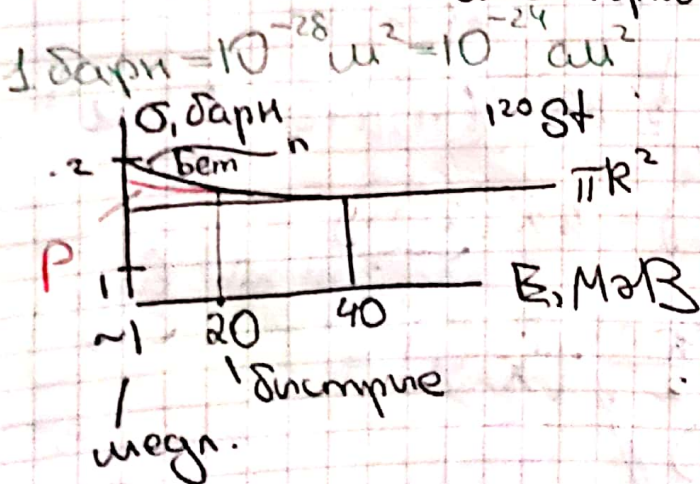 1 барн = 10⁻²⁸ м² = 10⁻²⁴ см²
σ, барн
¹²⁰St
2
n
πR²
P
1
E, МэВ
~1 20 40
быстрые
медл.